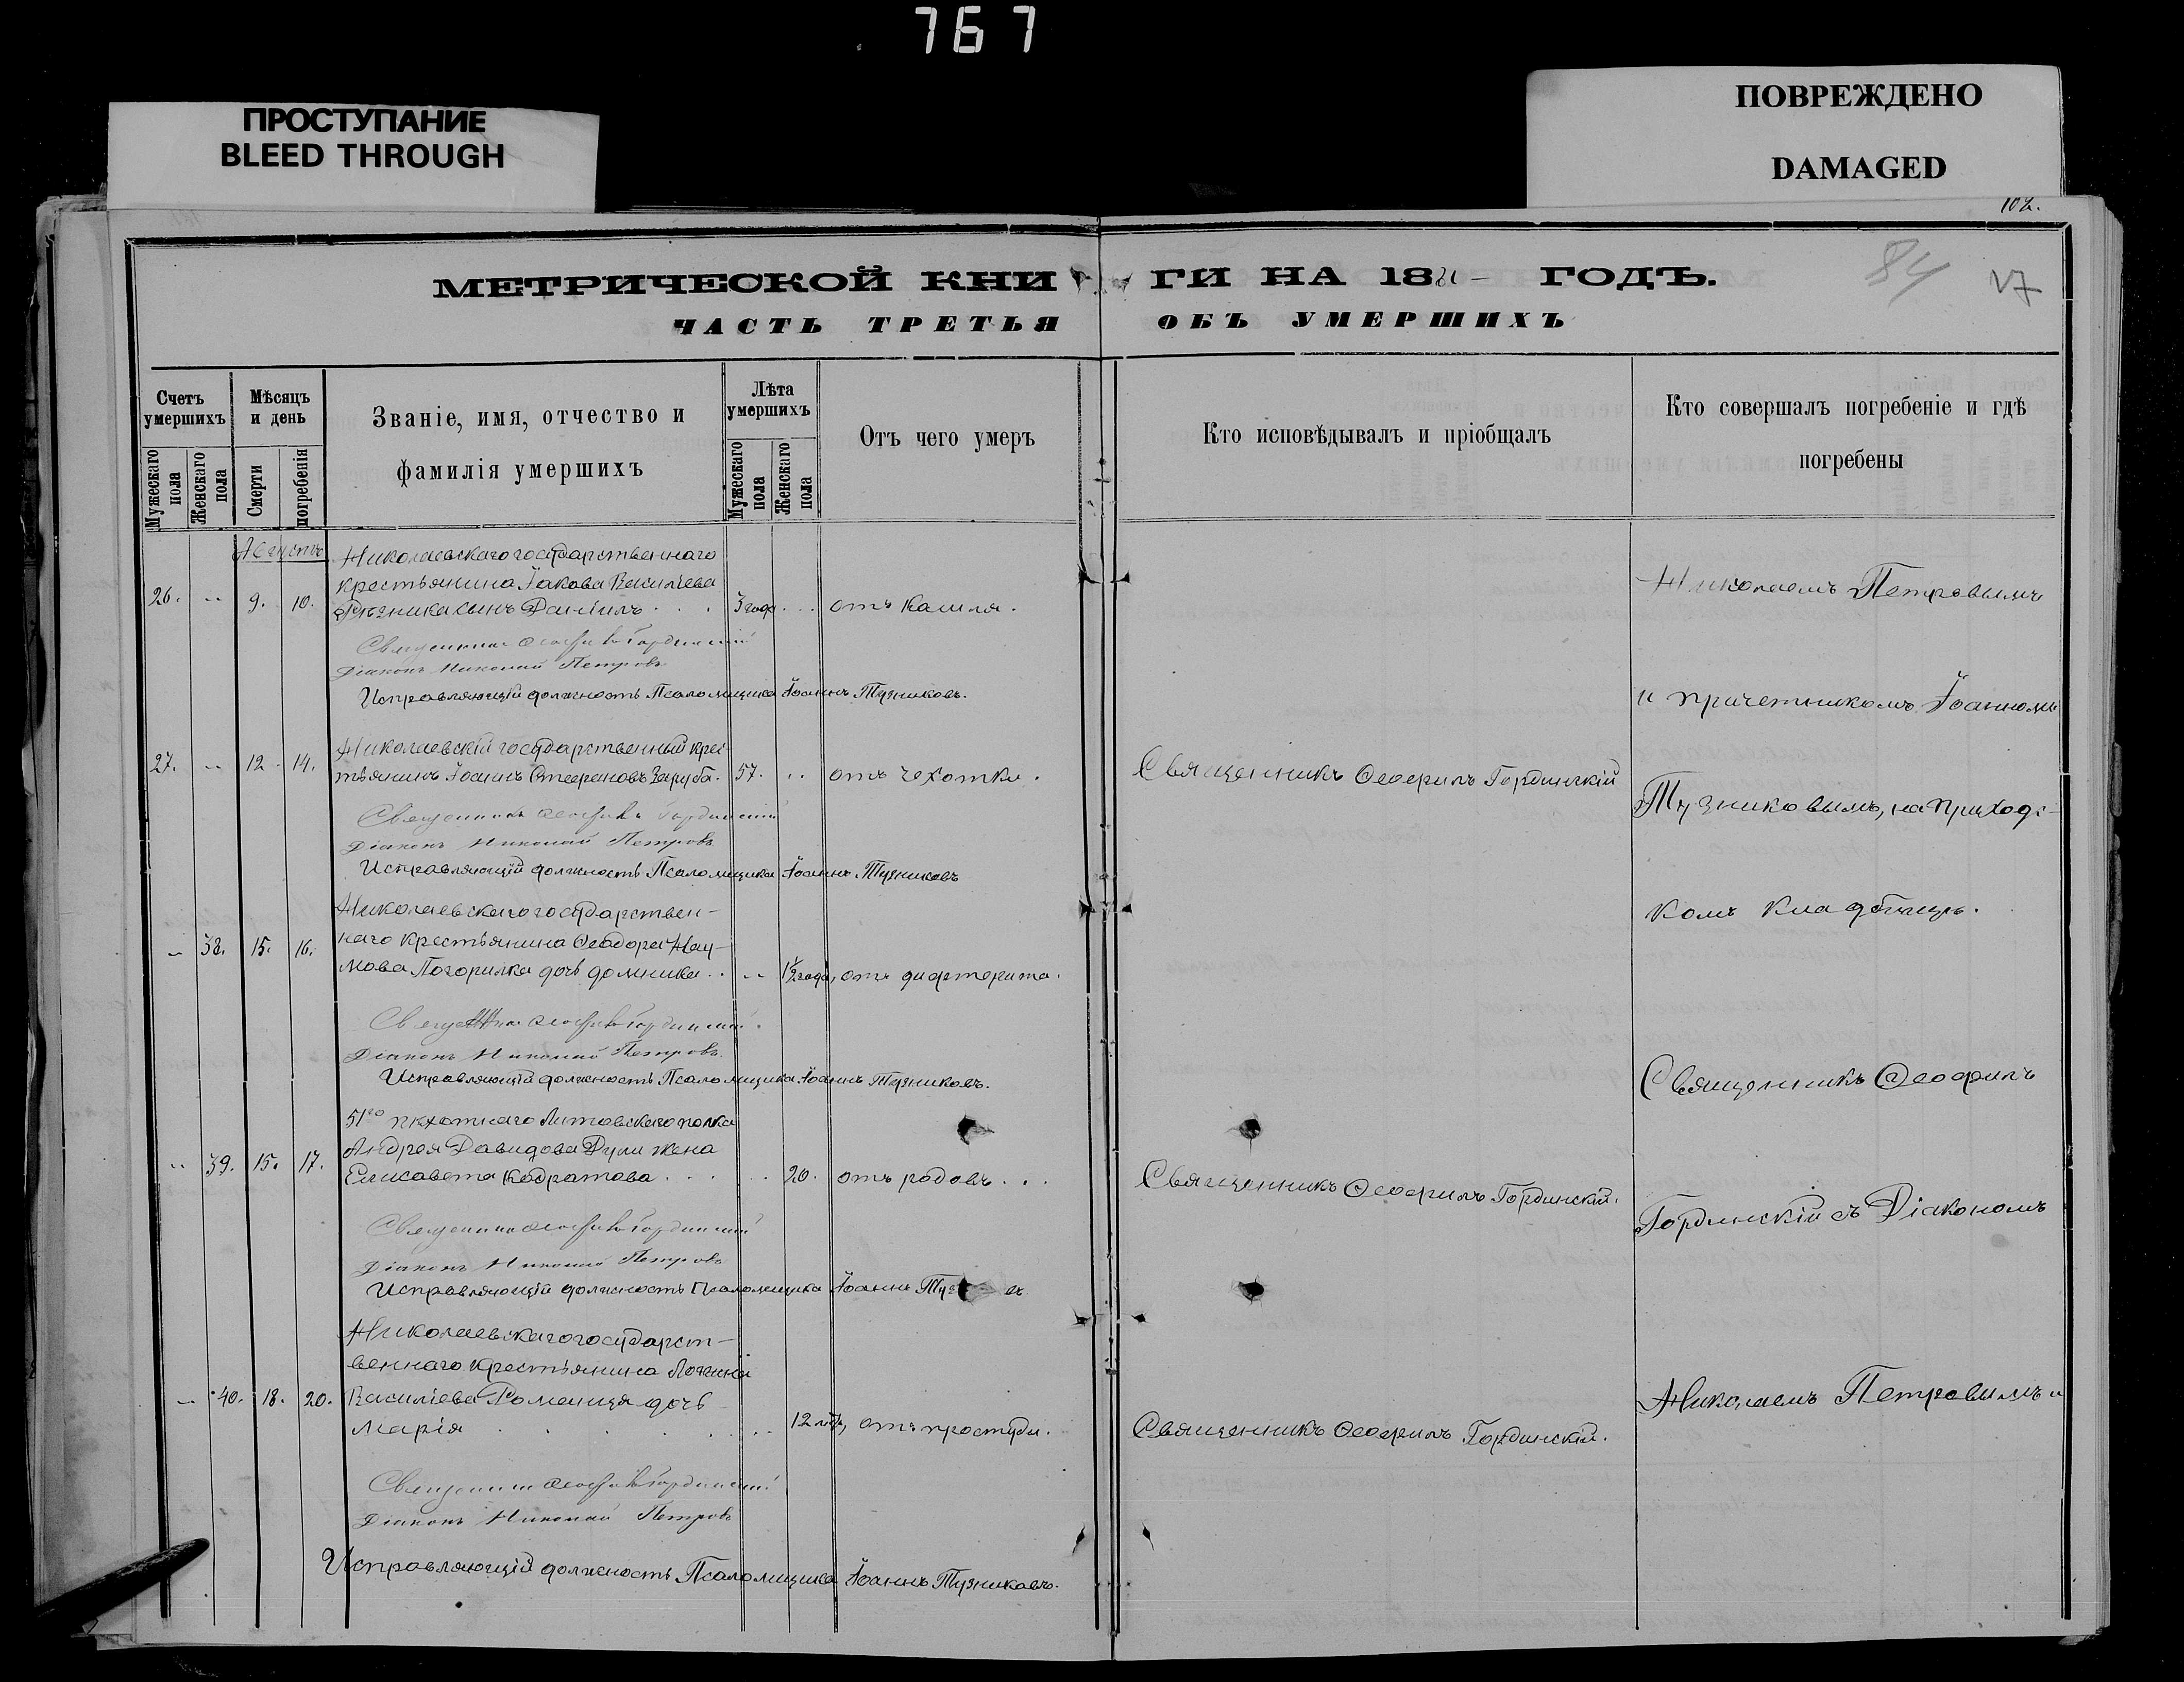 767
ПРОСТУПАНИЕ
BLEED THROUGH
ПОВРЕЖДЕНО
DAMAGED
102.
84
МЕТРИЧЕСКОЙ КНИГИ НА 18 ГОДЪ.
ЧАСТЬ ТРЕТЬЯ ОБЪ УМЕРШИХЪ
Счетъ умершихъ
Мужескаго пола
Женскаго пола
Мѣсяцъ и день
Смерти
погребенія
Званіе, имя, отчество и
фамилія умершихъ
Лѣта умершихъ
Мужескаго пола
Женскаго пола
Отъ чего умеръ
Кто исповѣдывалъ и пріобщалъ
Кто совершалъ погребеніе и гдѣ
погребены
Августъ
Николаевскаго государственнаго
крестьянина Іакова Василіева
26. 9. 10. Рѣзника сынъ Даніилъ 3 года отъ кашля.
Священникъ Ѳеофилъ Гординскій
Діаконъ Николай Петровъ
Исправляющій должность Псаломщика Іоаннъ Тузниковъ.
Николаевскій государственный крес-
27. 12. 14. тьянинъ Іоаннъ Стефановъ Заруба. 57. отъ чехотки. Священникъ Ѳеофилъ Гординскій
Священникъ Ѳеофилъ Гординскій
Діаконъ Николай Петровъ
Исправляющій должность Псаломщика Іоаннъ Тузниковъ
Николаевскаго государствен-
38. 15. 16. наго крестьянина Ѳеодора Нау-
мова Погорилка дочь Домника 1½ года, отъ дифтерита.
Священникъ Ѳеофилъ Гординскій.
Діаконъ Николай Петровъ
Исправляющій должность Псаломщика Іоаннъ Тузниковъ.
51го пѣхотнаго Литовскаго полка
Андрея Давидова Дули жена
39. 15. 17. Елисавета Кодратова 20. отъ родовъ Священникъ Ѳеофилъ Гординскій.
Священникъ Ѳеофилъ Гординскій
Діаконъ Николай Петровъ
Исправляющій должность Псаломщика Іоаннъ
Николаевскаго государст-
веннаго крестьянина Логина
40. 18. 20. Василіева Романця дочь
Марія 12 лѣтъ, отъ простуды. Священникъ Ѳеофилъ Гординскій.
Священникъ Ѳеофилъ Гординскій
Діаконъ Николай Петровъ
Исправляющій должность Псаломщика Іоаннъ Тузниковъ.
Николаемъ Петровымъ
и причетникомъ Іоанномъ
Тузниковымъ, на приходс-
комъ кладбищѣ.
Священникъ Ѳеофилъ
Гординскій съ Діакономъ
Николаемъ Петровымъ и